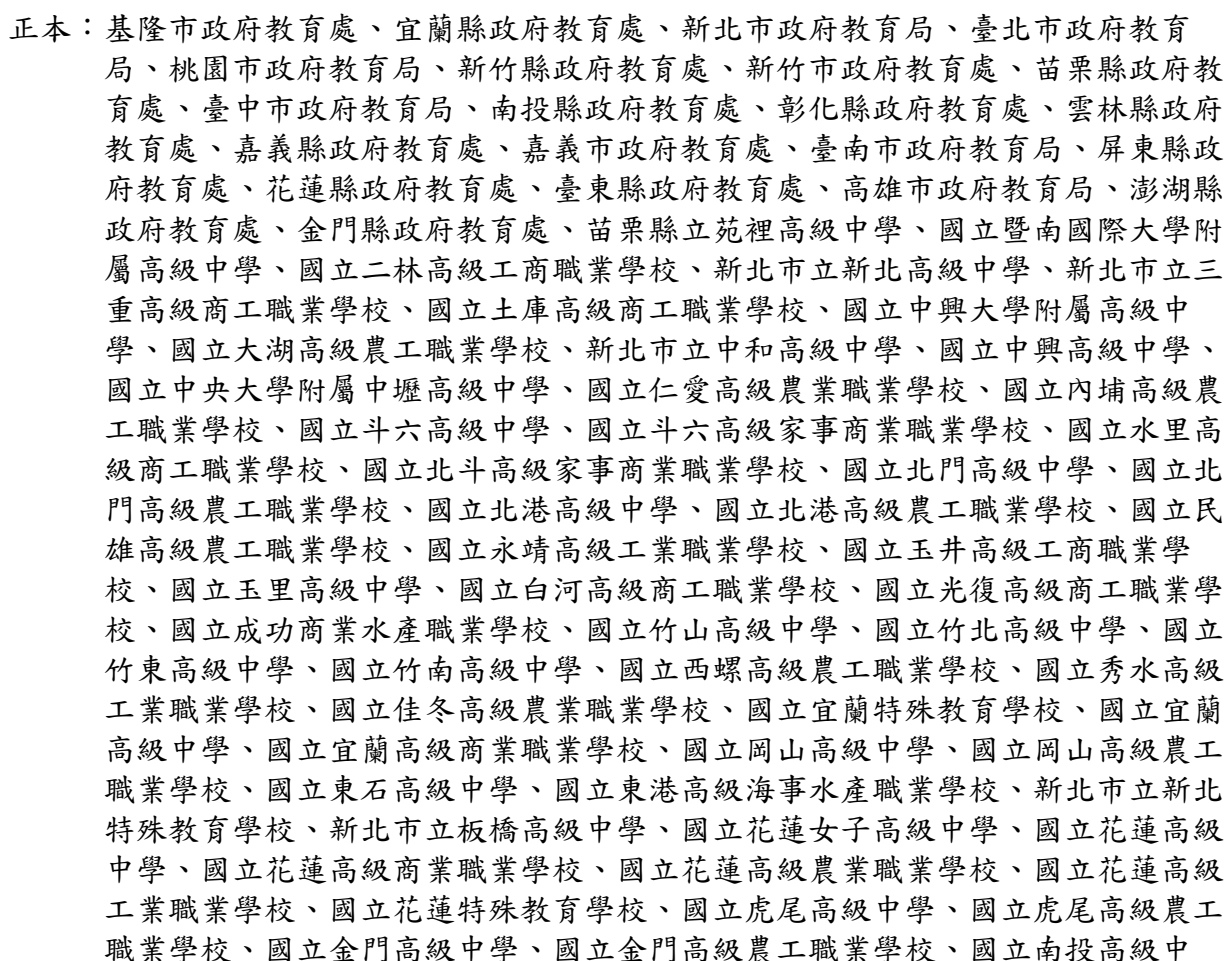 正本：基隆市政府教育處、宜蘭縣政府教育處、新北市政府教育局、臺北市政府教育
局、桃園市政府教育局、新竹縣政府教育處、新竹市政府教育處、苗栗縣政府教
育處、臺中市政府教育局、南投縣政府教育處、彰化縣政府教育處、雲林縣政府
教育處、嘉義縣政府教育處、嘉義市政府教育處、臺南市政府教育局、屏東縣政
府教育處、花蓮縣政府教育處、臺東縣政府教育處、高雄市政府教育局、澎湖縣
政府教育處、金門縣政府教育處、苗栗縣立苑裡高級中學、國立暨南國際大學附
屬高級中學、國立二林高級工商職業學校、新北市立新北高級中學、新北市立三
重高級商工職業學校、國立土庫高級商工職業學校、國立中興大學附屬高級中
學、國立大湖高級農工職業學校、新北市立中和高級中學、國立中興高級中學、
國立中央大學附屬中壢高級中學、國立仁愛高級農業職業學校、國立內埔高級農
工職業學校、國立斗六高級中學、國立斗六高級家事商業職業學校、國立水里高
級商工職業學校、國立北斗高級家事商業職業學校、國立北門高級中學、國立北
門高級農工職業學校、國立北港高級中學、國立北港高級農工職業學校、國立民
雄高級農工職業學校、國立永靖高級工業職業學校、國立玉井高級工商職業學
校、國立玉里高級中學、國立白河高級商工職業學校、國立光復高級商工職業學
校、國立成功商業水產職業學校、國立竹山高級中學、國立竹北高級中學、國立
竹東高級中學、國立竹南高級中學、國立西螺高級農工職業學校、國立秀水高級
工業職業學校、國立佳冬高級農業職業學校、國立宜蘭特殊教育學校、國立宜蘭
高級中學、國立宜蘭高級商業職業學校、國立岡山高級中學、國立岡山高級農工
職業學校、國立東石高級中學、國立東港高級海事水產職業學校、新北市立新北
特殊教育學校、新北市立板橋高級中學、國立花蓮女子高級中學、國立花蓮高級
中學、國立花蓮高級商業職業學校、國立花蓮高級農業職業學校、國立花蓮高級
工業職業學校、國立花蓮特殊教育學校、國立虎尾高級中學、國立虎尾高級農工
職業學校、國立金門高級中學、國立金門高級農工職業學校、國立南投高級中